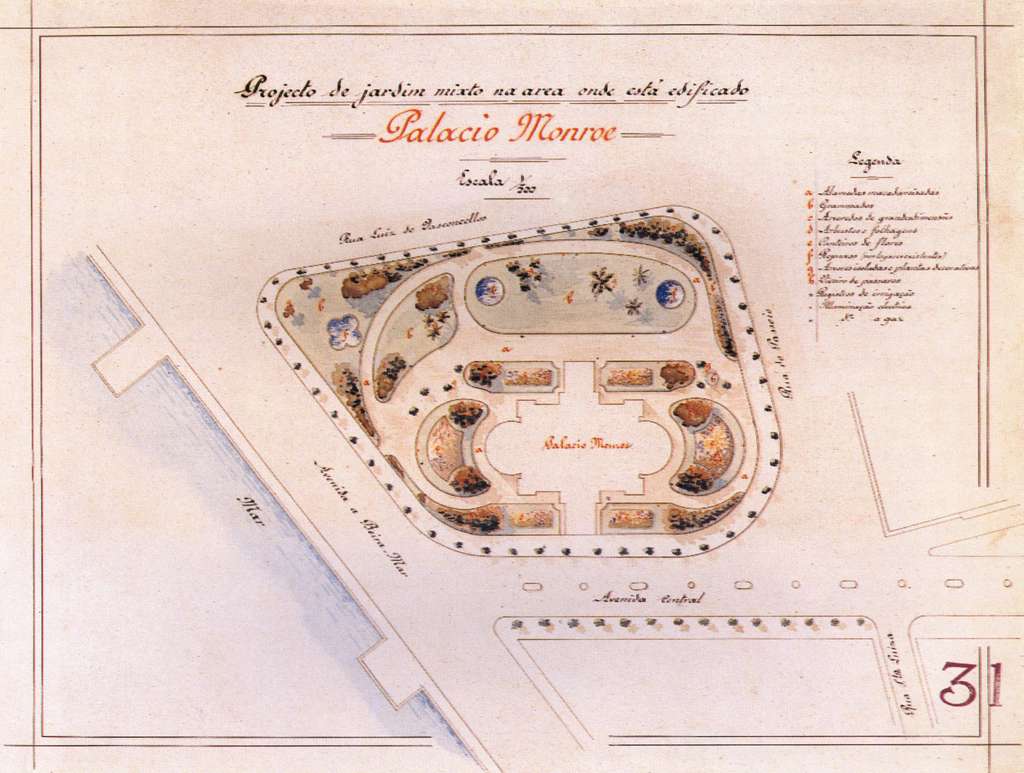 Projecto de jardim mixto na area onde está edificado
Palacio Monroe
Escala 1/500
Legenda
a Alamedas macadamisadas
b Grammados
c Arvoredos de grande dimensão
d Arbustos e folhagens
e Canteiros de flores
f Repuxos (nos lagos existentes)
g Arvores isoladas e plantas decorativas
h Viveiro de passaros
Registros de irrigação
Illuminação electrica
a gaz
Rua Luiz de Vasconcellos
Rua do Passeio
Palacio Monroe
Mar
Avenida a Beira-Mar
Avenida Central
Rua Sta Luiza
31